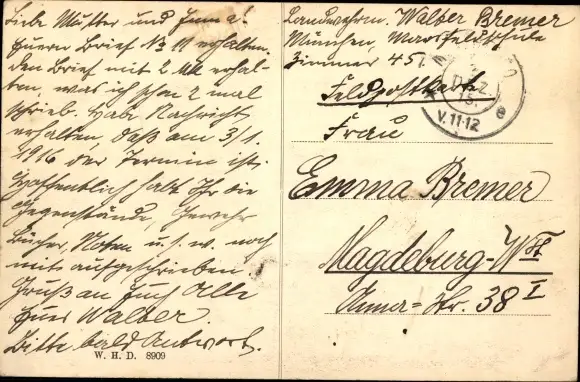 Liebe Mutter und Emma!
Euern Brief № 11 erhalten.
den Brief mit 2 M erhal-
ten, was ich schon 2 mal
schrieb. Habe Nachricht
erhalten, daß am 3/1.
1916 der Termin ist.
Hoffentlich habt Ihr die
Gegenstände, Gewehr
Bücher, Noten u. s. w. noch
mit aufgeschrieben.
Gruß an Euch Alle
Euer Walter.
Bitte bald Antwort.
W. H. D. 8909
Landwehrm. Walter Bremer
München, Marsfeldschule
Zimmer 45
Feldpostkarte
DEZ.
15.
V.11-12
Frau
Emma Bremer
Magdeburg-Wst
38 I